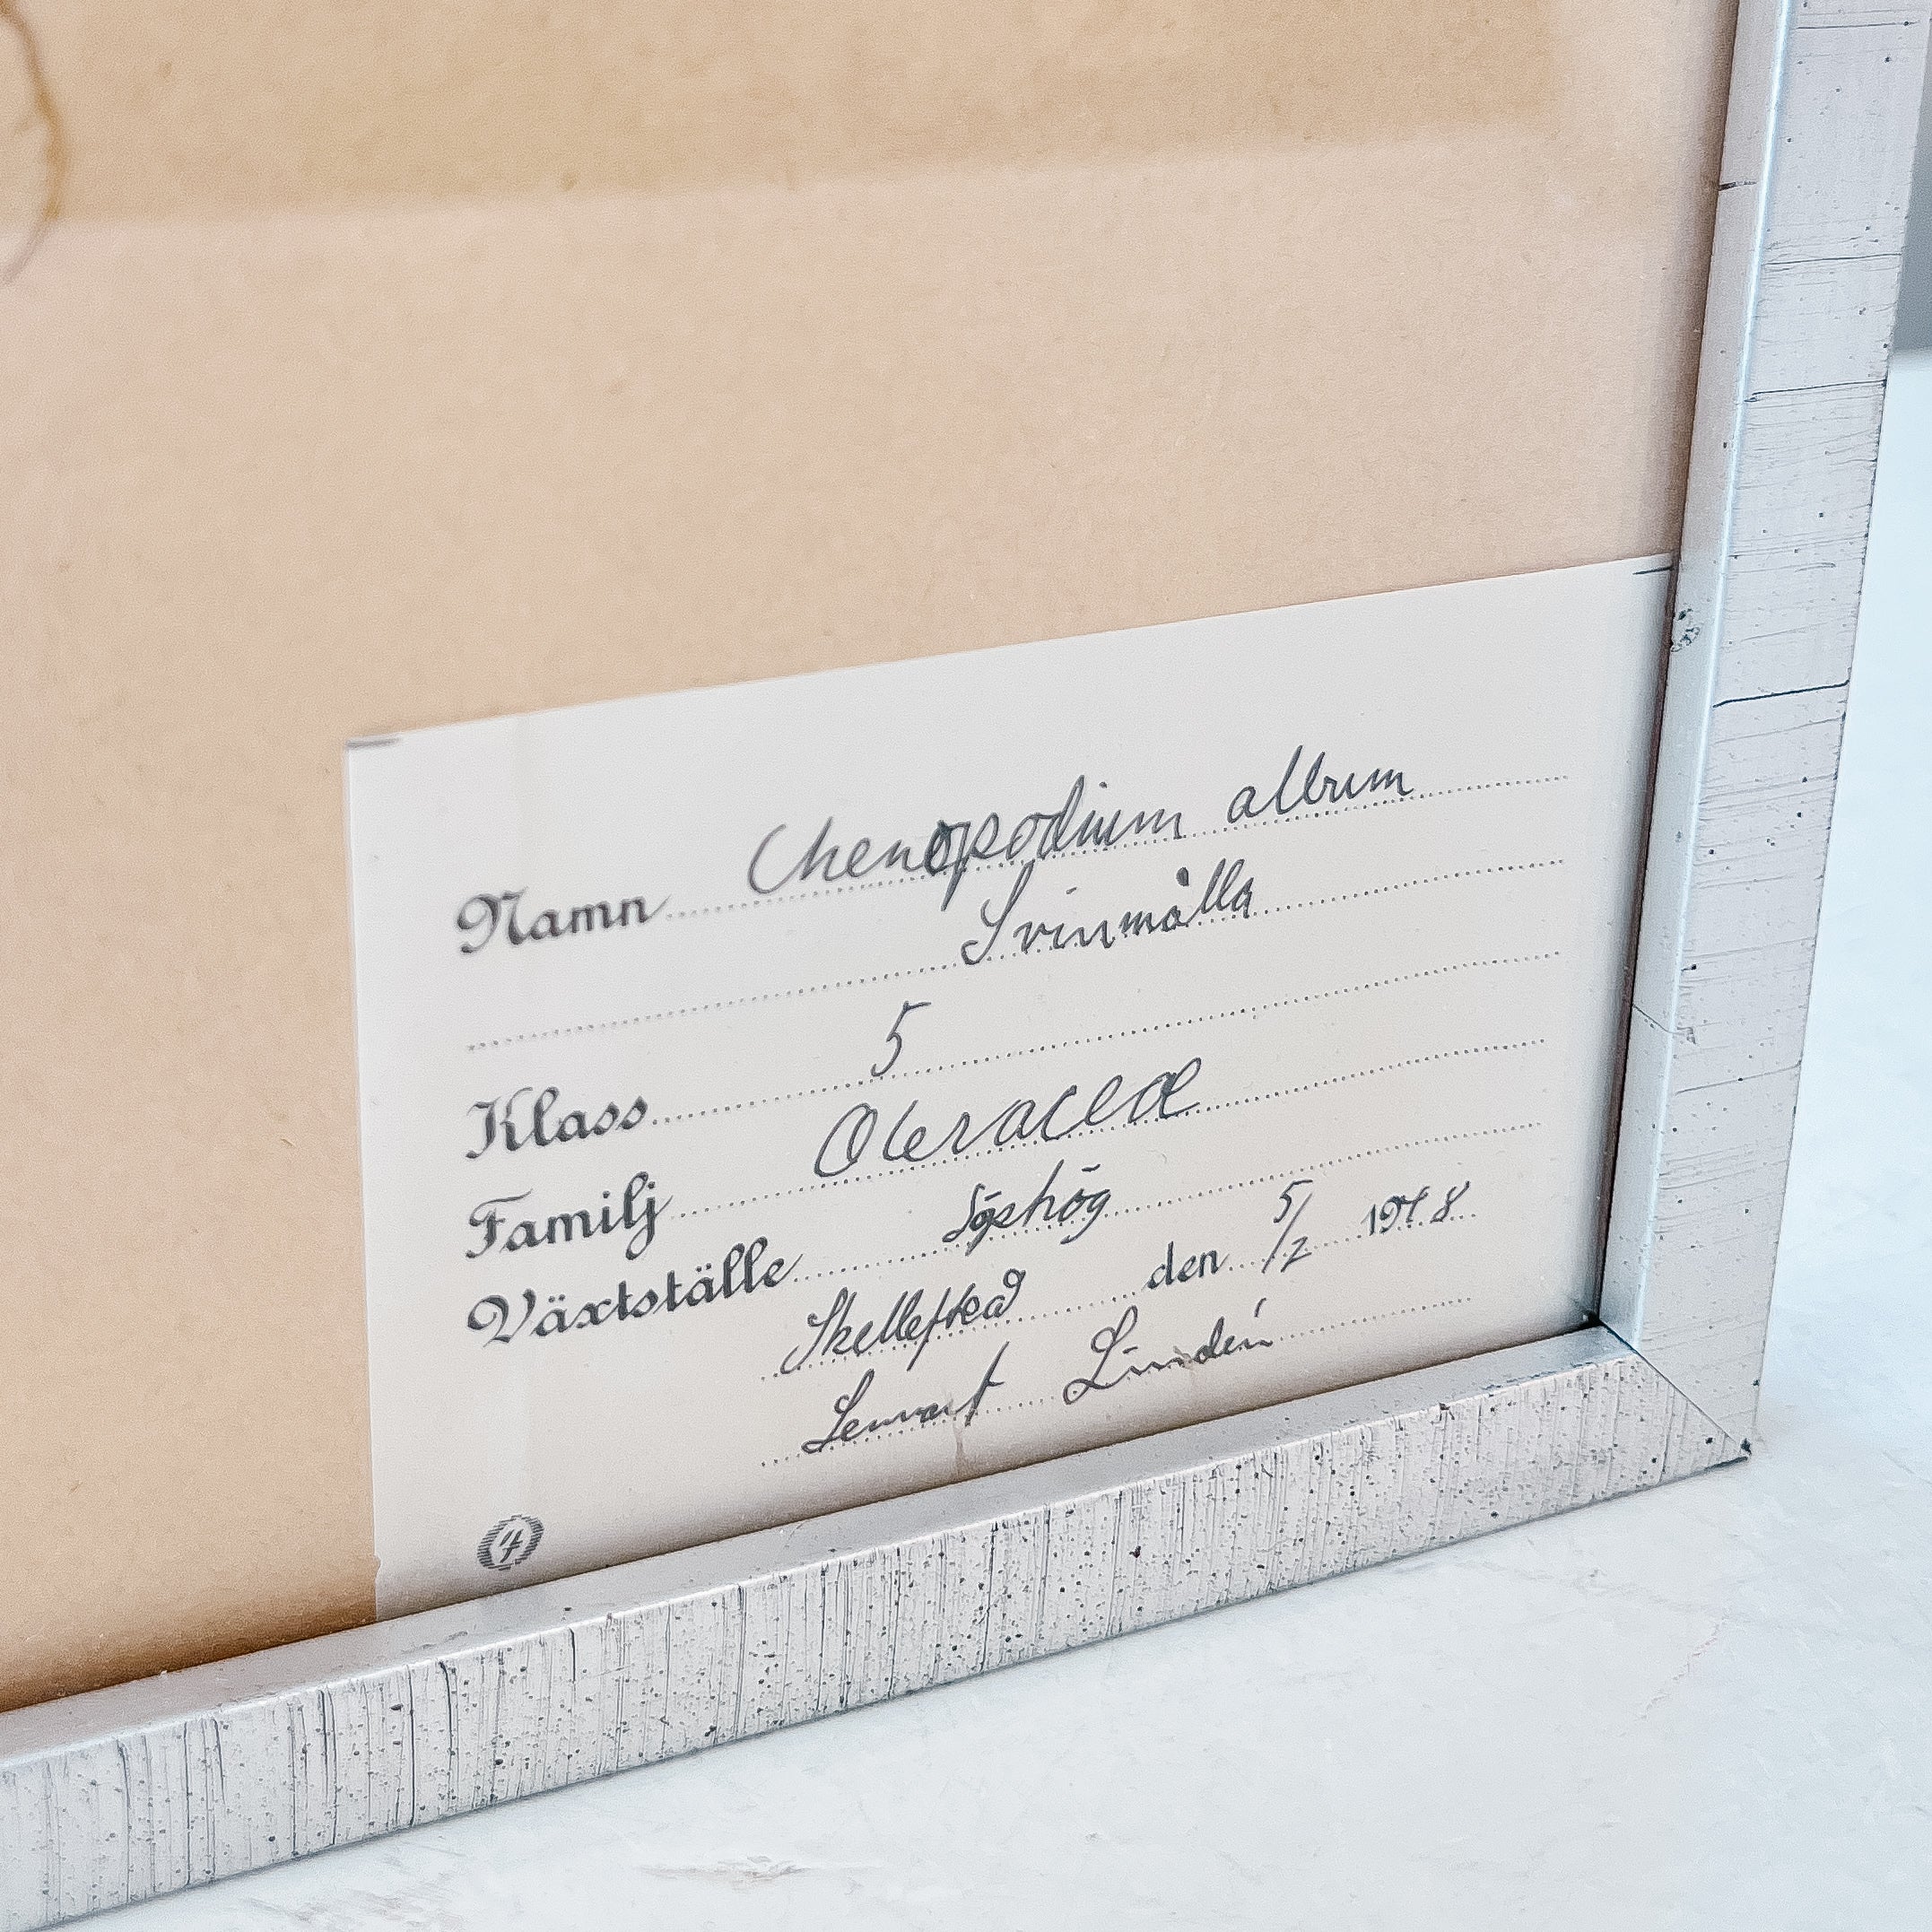 Namn Chenopodium album
Svinmålla
Klass 5
Familj Oleraceæ
Växtställe Sophög
Skellefteå den 5/2 1948
Lennart Lindén
4